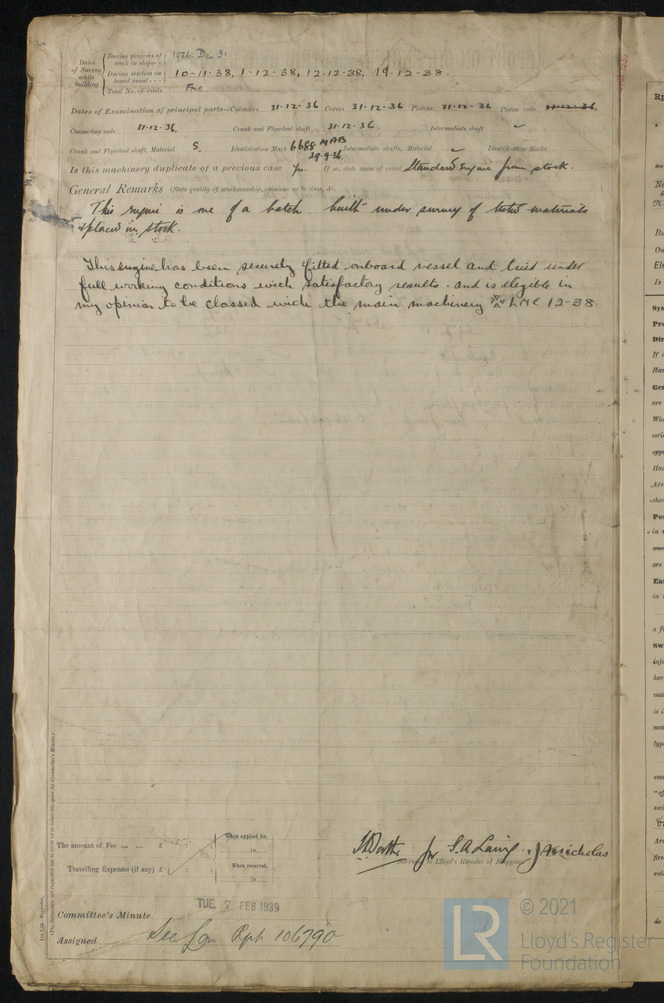 Dates of Survey while building
During progress of work in shops - - 1936. Dec 31
During erection on board vessel - - - 10-11-38, 1-12-38, 12-12-38, 19-12-38.
Total No. of visits Five
Dates of Examination of principal parts—Cylinders 31-12-36 Covers 31-12-36 Pistons 31-12-36 Piston rods
Connecting rods 31-12-36. Crank and Flywheel shaft 31-12-36. Intermediate shaft -
Crank and Flywheel shaft, Material S. Identification Mark 6688 MAB 29-9-36 Intermediate shafts, Material - Identification Marks
Is this machinery duplicate of a previous case Yes If so, state name of vessel Standard Engine from stock.
General Remarks (State quality of workmanship, opinions as to class, &c.
This engine is one of a batch built under survey of tested materials
& placed in stock.
This engine has been securely fitted onboard vessel and tried under
full working conditions with satisfactory results and is eligible in
my opinion to be classed with the main machinery LMC 12-38.
The amount of Fee ... ... £ : : When applied for,
19
Travelling Expenses (if any) £ : : When received,
19
for S.A. Laing J. Nicholas
Surveyor to Lloyd's Register of Shipping
TUE. 7 FEB 1939
Committee's Minute
Assigned See Lon Rpt 106790
© 2021
LR
Lloyd's Register
Foundation